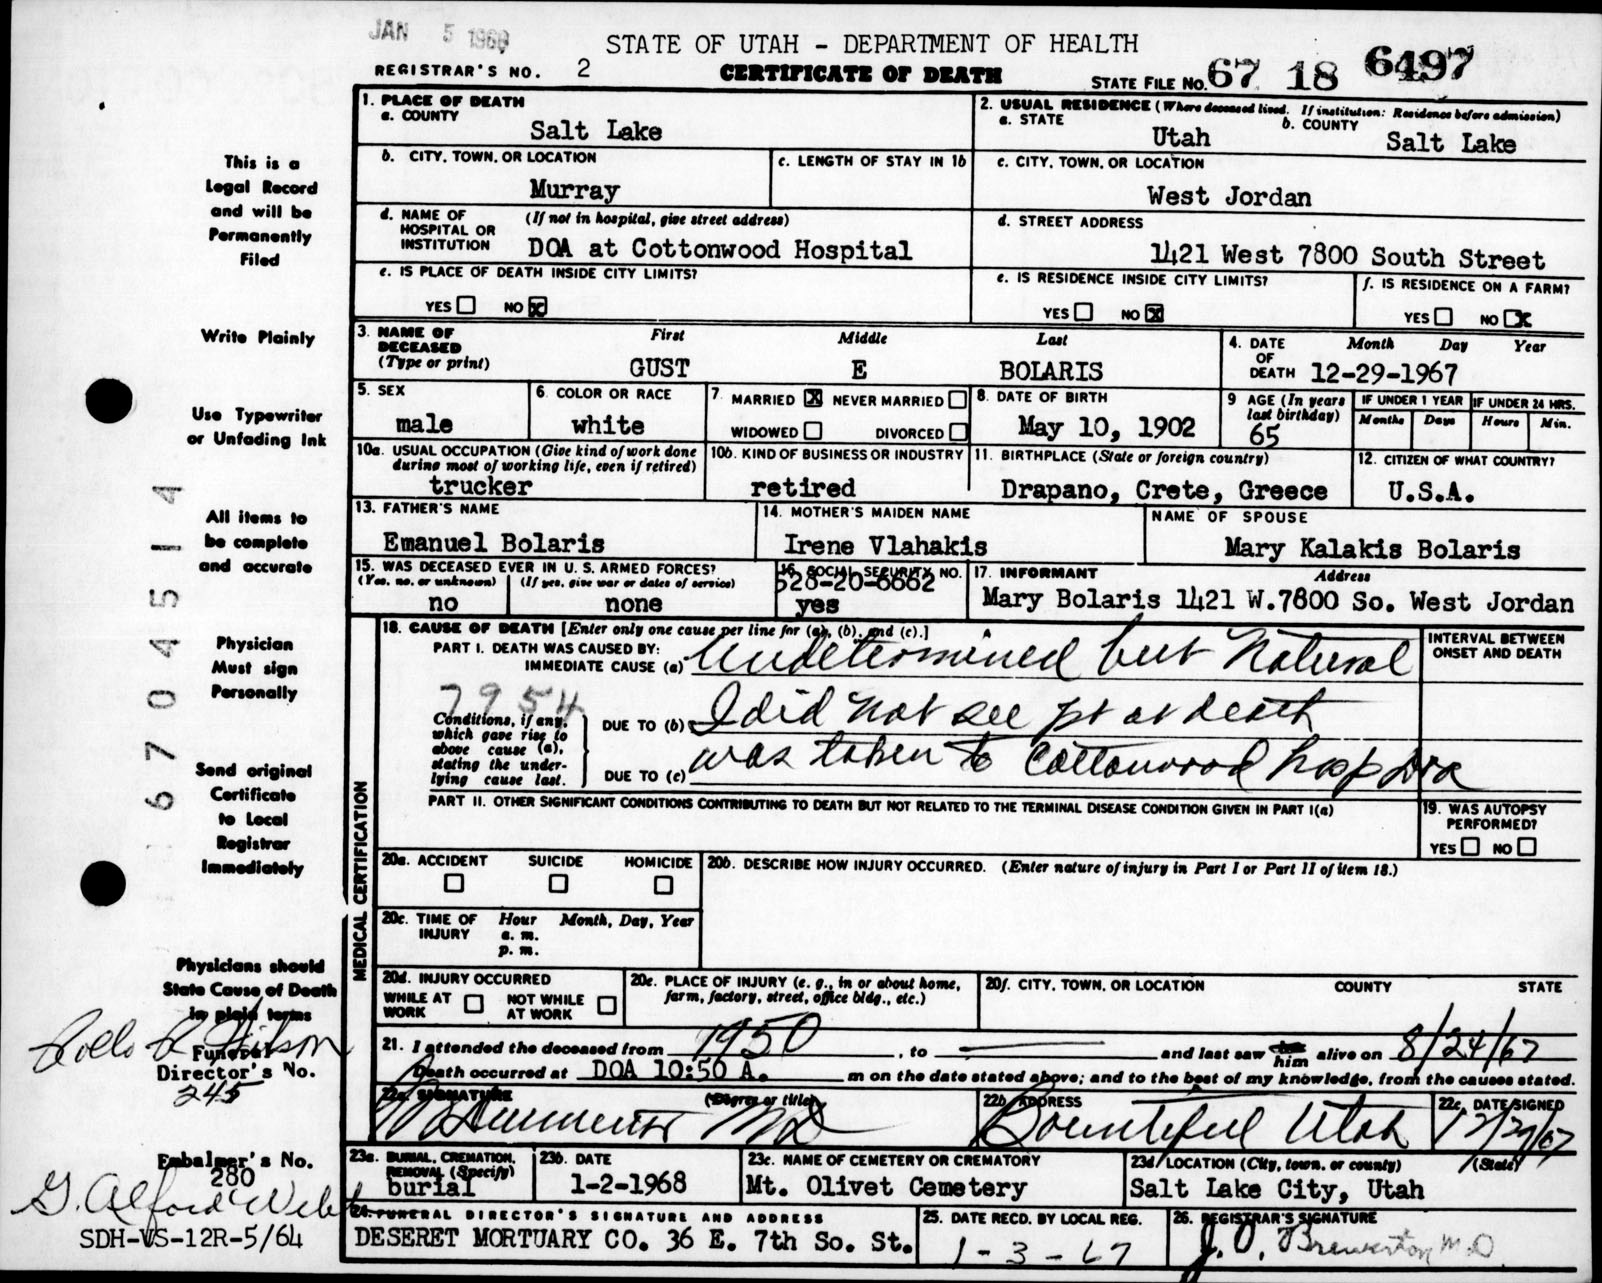 JAN 5 1968
STATE OF UTAH - DEPARTMENT OF HEALTH
REGISTRAR'S NO. 2
CERTIFICATE OF DEATH
STATE FILE NO. 67 18 6497
This is a
Legal Record
and will be
Permanently
Filed
Write Plainly
Use Typewriter
or Unfading Ink
All items to
be complete
and accurate
Physician
Must sign
Personally
Send original
Certificate
to Local
Registrar
Immediately
Physicians should
State Cause of Death
in plain terms
Funeral
Director's No.
245
Embalmer's No.
280
G. Alford Webb
SDH-VS-12R-5/64
67 04514
1. PLACE OF DEATH
a. COUNTY
Salt Lake
b. CITY, TOWN, OR LOCATION
Murray
c. LENGTH OF STAY IN 1b
d. NAME OF HOSPITAL OR INSTITUTION (If not in hospital, give street address)
DOA at Cottonwood Hospital
e. IS PLACE OF DEATH INSIDE CITY LIMITS?
YES NO X
2. USUAL RESIDENCE (Where deceased lived. If institution: Residence before admission)
a. STATE
Utah
b. COUNTY
Salt Lake
c. CITY, TOWN, OR LOCATION
West Jordan
d. STREET ADDRESS
1421 West 7800 South Street
e. IS RESIDENCE INSIDE CITY LIMITS?
YES NO X
f. IS RESIDENCE ON A FARM?
YES NO X
3. NAME OF DECEASED (Type or print)
First Middle Last
GUST E BOLARIS
4. DATE OF DEATH Month Day Year
12-29-1967
5. SEX
male
6. COLOR OR RACE
white
7. MARRIED X NEVER MARRIED
WIDOWED DIVORCED
8. DATE OF BIRTH
May 10, 1902
9 AGE (In years last birthday)
65
IF UNDER 1 YEAR
Months Days
IF UNDER 24 HRS.
Hours Min.
10a. USUAL OCCUPATION (Give kind of work done during most of working life, even if retired)
trucker
10b. KIND OF BUSINESS OR INDUSTRY
retired
11. BIRTHPLACE (State or foreign country)
Drapano, Crete, Greece
12. CITIZEN OF WHAT COUNTRY?
U.S.A.
13. FATHER'S NAME
Emanuel Bolaris
14. MOTHER'S MAIDEN NAME
Irene Vlahakis
NAME OF SPOUSE
Mary Kalakis Bolaris
15. WAS DECEASED EVER IN U. S. ARMED FORCES?
(Yes, no, or unknown) (If yes, give war or dates of service)
no none
16. SOCIAL SECURITY NO.
528-20-6662
yes
17. INFORMANT Address
Mary Bolaris 1421 W.7800 So. West Jordan
MEDICAL CERTIFICATION
18. CAUSE OF DEATH [Enter only one cause per line for (a), (b), and (c).]
PART I. DEATH WAS CAUSED BY:
IMMEDIATE CAUSE (a) Undetermined but Natural
7954
Conditions, if any, which gave rise to above cause (a), stating the underlying cause last.
DUE TO (b) I did not see pt at death
DUE TO (c) was taken to Cottonwood hosp DOA
INTERVAL BETWEEN ONSET AND DEATH
PART II. OTHER SIGNIFICANT CONDITIONS CONTRIBUTING TO DEATH BUT NOT RELATED TO THE TERMINAL DISEASE CONDITION GIVEN IN PART I(a)
19. WAS AUTOPSY PERFORMED?
YES NO
20a. ACCIDENT SUICIDE HOMICIDE
20b. DESCRIBE HOW INJURY OCCURRED. (Enter nature of injury in Part I or Part II of item 18.)
20c. TIME OF INJURY Hour a. m. p. m. Month, Day, Year
20d. INJURY OCCURRED
WHILE AT WORK NOT WHILE AT WORK
20e. PLACE OF INJURY (e. g., in or about home, farm, factory, street, office bldg., etc.)
20f. CITY, TOWN, OR LOCATION COUNTY STATE
21. I attended the deceased from 1950, to and last saw him alive on 8/24/67
Death occurred at DOA 10:50 A. m on the date stated above; and to the best of my knowledge, from the causes stated.
22a. SIGNATURE (Degree or title)
MD
22b. ADDRESS
Bountiful Utah
22c. DATE SIGNED
12/29/67
23a. BURIAL, CREMATION, REMOVAL (Specify)
burial
23b. DATE
1-2-1968
23c. NAME OF CEMETERY OR CREMATORY
Mt. Olivet Cemetery
23d. LOCATION (City, town, or county) (State)
Salt Lake City, Utah
24. FUNERAL DIRECTOR'S SIGNATURE AND ADDRESS
DESERET MORTUARY CO. 36 E. 7th So. St.
25. DATE RECD. BY LOCAL REG.
1-3-67
26. REGISTRAR'S SIGNATURE
J. O. Brewerton, M.D